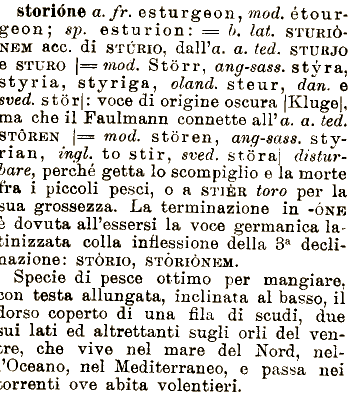 storióne a. fr. esturgeon, mod. étour-
geon; sp. esturion: = b. lat. STURIÒ-
NEM acc. di STÚRIO, dall'a. a. ted. STURJO
e STURO |= mod. Störr, ang-sass. stýra,
styria, styriga, oland. steur, dan. e
sved. stör|: voce di origine oscura |Kluge|,
ma che il Faulmann connette all'a. a. ted.
STÔREN |= mod. stören, ang-sass. sty-
rian, ingl. to stir, sved. störa| distur-
bare, perché getta lo scompiglio e la morte
fra i piccoli pesci, o a STIÈR toro per la
sua grossezza. La terminazione in -ÓNE
è dovuta all'essersi la voce germanica la-
tinizzata colla inflessione della 3ª decli-
nazione: STÒRIO, STÒRIÒNEM.
Specie di pesce ottimo per mangiare,
con testa allungata, inclinata al basso, il
dorso coperto di una fila di scudi, due
sui lati ed altrettanti sugli orli del ven-
tre, che vive nel mare del Nord, nel-
l'Oceano, nel Mediterraneo, e passa nei
torrenti ove abita volentieri.